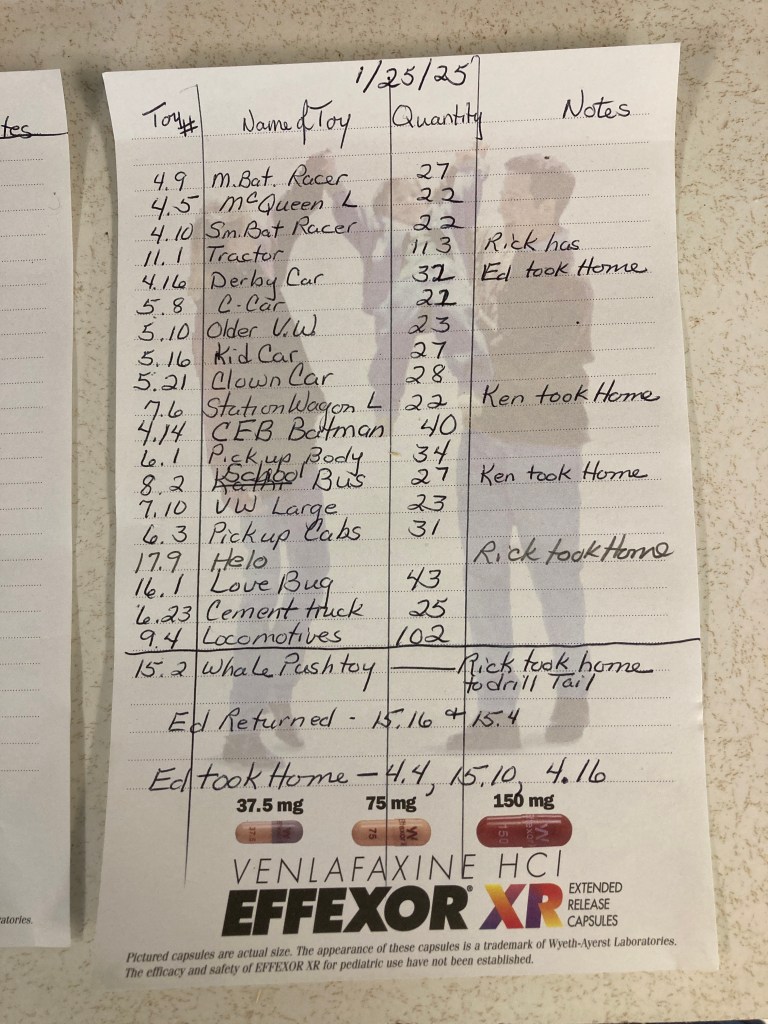 tes
1/25/25
Toy# Name of Toy Quantity Notes
4.9 M.Bat. Racer 27
4.5 McQueen L 22
4.10 Sm.Bat Racer 22
11.1 Tractor 113 Rick has
4.16 Derby Car 32 Ed took Home
5.8 C-Car 22
5.10 Older V.W 23
5.16 Kid Car 27
5.21 Clown Car 28
7.6 Station Wagon L 22 Ken took Home
4.14 CEB Batman 40
6.1 Pick up Body 34
8.2 School Bus 27 Ken took Home
7.10 VW Large 23
6.3 Pickup Cabs 31
17.9 Helo Rick took Home
16.1 Love Bug 43
6.23 Cement truck 25
9.4 Locomotives 102
15.2 Whale Push toy — Rick took home
to drill Tail
Ed Returned - 15.16 & 15.4
Ed took Home – 4.4, 15.10, 4.16
37.5 mg 75 mg 150 mg
VENLAFAXINE HCl
EFFEXOR® XR EXTENDED
RELEASE
CAPSULES
Pictured capsules are actual size. The appearance of these capsules is a trademark of Wyeth-Ayerst Laboratories.
The efficacy and safety of EFFEXOR XR for pediatric use have not been established.
atories.